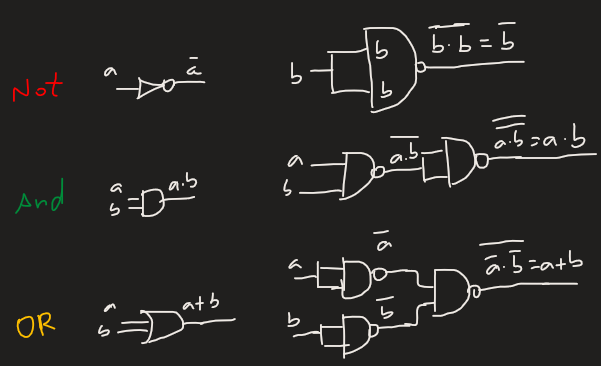 Not a a̅ b b b \overline{b·b} = b̅
And a b a·b a b \overline{a·b} \overline{\overline{a·b}} = a·b
OR a b a+b a a̅ b b̅ \overline{a̅·b̅} = a+b